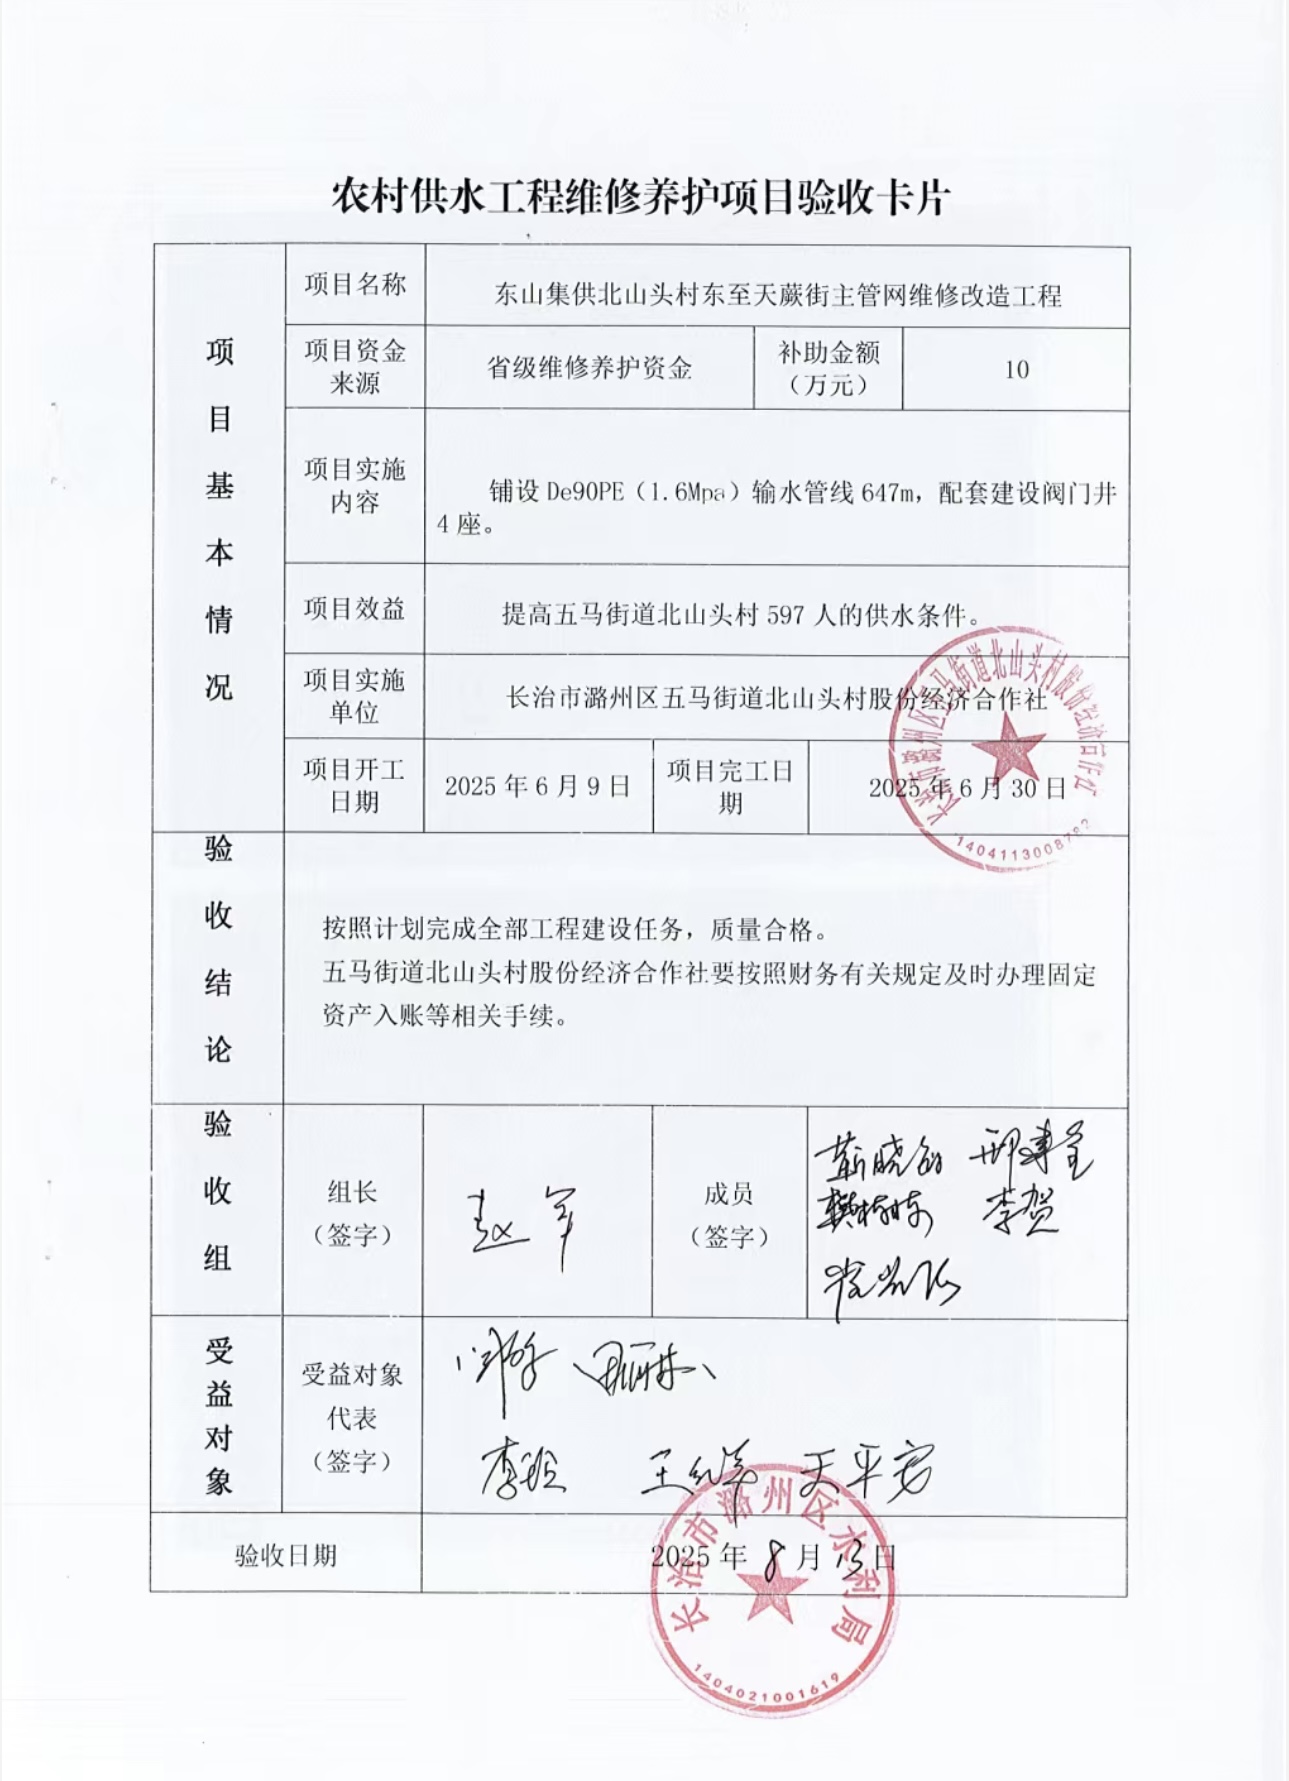 农村供水工程维修养护项目验收卡片
项目基本情况
项目名称
东山集供北山头村东至天蕨街主管网维修改造工程
项目资金
来源
省级维修养护资金
补助金额
（万元）
10
项目实施
内容
铺设 De90PE（1.6Mpa）输水管线 647m，配套建设阀门井
4 座。
项目效益
提高五马街道北山头村 597 人的供水条件。
项目实施
单位
长治市潞州区五马街道北山头村股份经济合作社
项目开工
日期
2025 年 6 月 9 日
项目完工日
期
2025 年 6 月 30 日
长治市潞州区五马街道北山头村股份经济合作社
1404113008782
验收结论
按照计划完成全部工程建设任务，质量合格。
五马街道北山头村股份经济合作社要按照财务有关规定及时办理固定
资产入账等相关手续。
验收组
组长
（签字）
赵军
成员
（签字）
李贺
受益对象
受益对象
代表
（签字）
验收日期
2025 年 8 月 13 日
长治市潞州区水利局
1404021001619